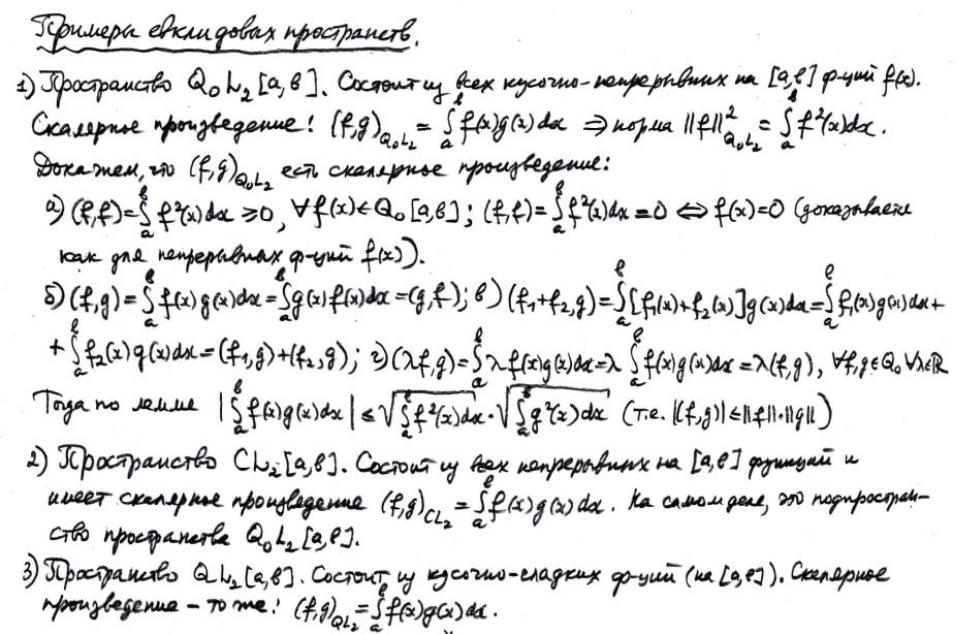 Примеры евклидовых пространств.
1) Пространство Q₀L₂[a,b]. Состоит из всех кусочно-непрерывных на [a,b] ф-ций f(x).
Скалярное произведение: (f,g)_{Q₀L₂} = ∫ₐᵇ f(x)g(x)dx ⇒ норма ‖f‖²_{Q₀L₂} = ∫ₐᵇ f²(x)dx.
Докажем, что (f,g)_{Q₀L₂} есть скалярное произведение:
а) (f,f) = ∫ₐᵇ f²(x)dx ≥ 0, ∀f(x)∈Q₀[a,b]; (f,f) = ∫ₐᵇ f²(x)dx = 0 ⇔ f(x)=0 (доказываем
как для непрерывных ф-ций f(x)).
б) (f,g) = ∫ₐᵇ f(x)g(x)dx = ∫ₐᵇ g(x)f(x)dx = (g,f); в) (f₁+f₂,g) = ∫ₐᵇ [f₁(x)+f₂(x)]g(x)dx = ∫ₐᵇ f₁(x)g(x)dx +
+ ∫ₐᵇ f₂(x)g(x)dx = (f₁,g)+(f₂,g); г) (λf,g) = ∫ₐᵇ λf(x)g(x)dx = λ ∫ₐᵇ f(x)g(x)dx = λ(f,g), ∀f,g∈Q₀ ∀λ∈ℝ
Тогда по лемме |∫ₐᵇ f(x)g(x)dx| ≤ √(∫ₐᵇ f²(x)dx) · √(∫ₐᵇ g²(x)dx) (т.е. |(f,g)| ≤ ‖f‖·‖g‖)
2) Пространство CL₂[a,b]. Состоит из всех непрерывных на [a,b] функций и
имеет скалярное произведение (f,g)_{CL₂} = ∫ₐᵇ f(x)g(x)dx. На самом деле, это подпростран-
ство пространства Q₀L₂[a,b].
3) Пространство QL₂[a,b]. Состоит из кусочно-гладких ф-ций (на [a,b]). Скалярное
произведение – то же: (f,g)_{QL₂} = ∫ₐᵇ f(x)g(x)dx.